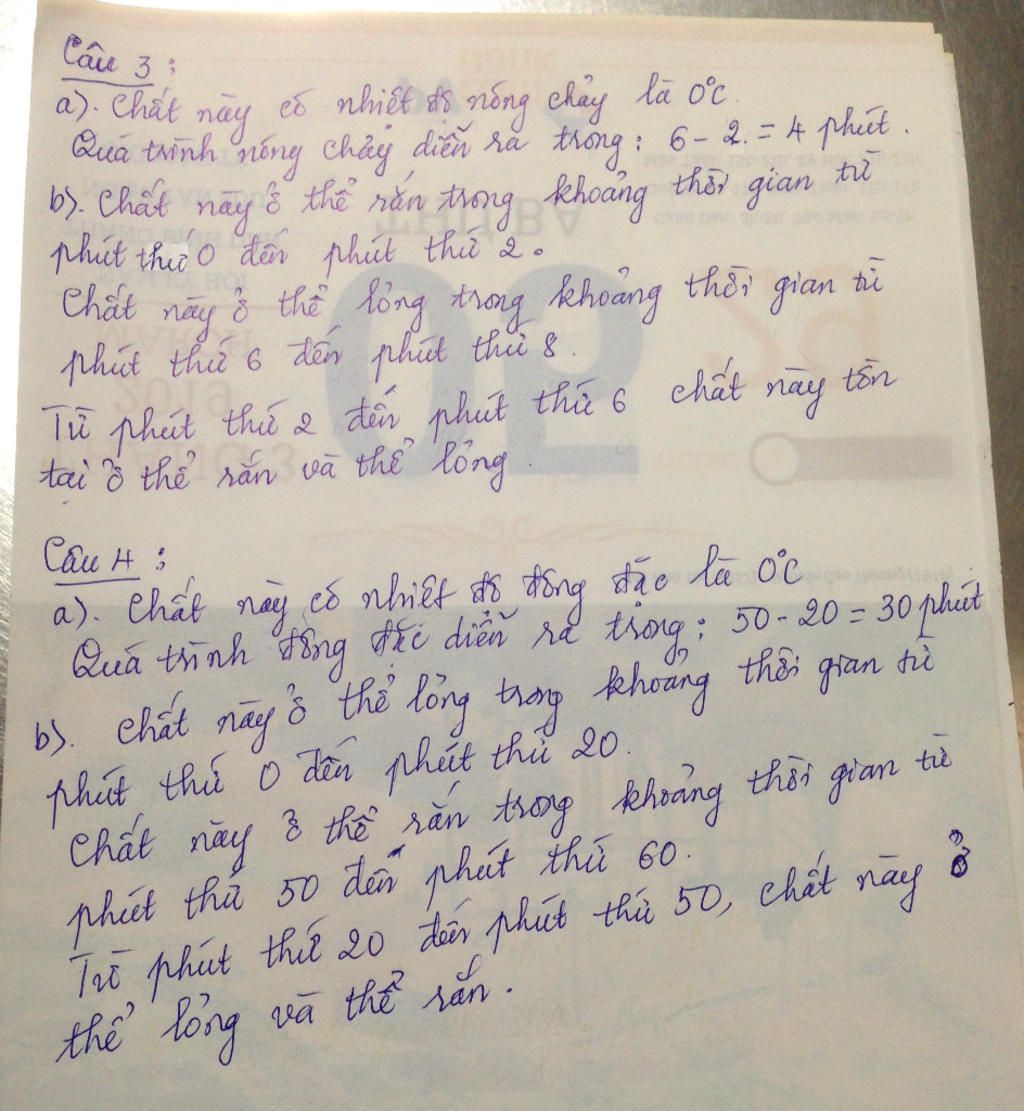 Câu 3 :
a). Chất này có nhiệt độ nóng chảy là 0°C.
Quá trình nóng chảy diễn ra trong: 6 - 2 = 4 phút.
b). Chất này ở thể rắn trong khoảng thời gian từ
phút thứ 0 đến phút thứ 2.
Chất này ở thể lỏng trong khoảng thời gian từ
phút thứ 6 đến phút thứ 8.
Từ phút thứ 2 đến phút thứ 6 chất này tồn
tại ở thể rắn và thể lỏng.
Câu 4 :
a). Chất này có nhiệt độ đông đặc là 0°C
Quá trình đông đặc diễn ra trong: 50 - 20 = 30 phút
b). Chất này ở thể lỏng trong khoảng thời gian từ
phút thứ 0 đến phút thứ 20.
Chất này ở thể rắn trong khoảng thời gian từ
phút thứ 50 đến phút thứ 60.
Từ phút thứ 20 đến phút thứ 50, chất này ở
thể lỏng và thể rắn.
THỨ BA
05
25
2019